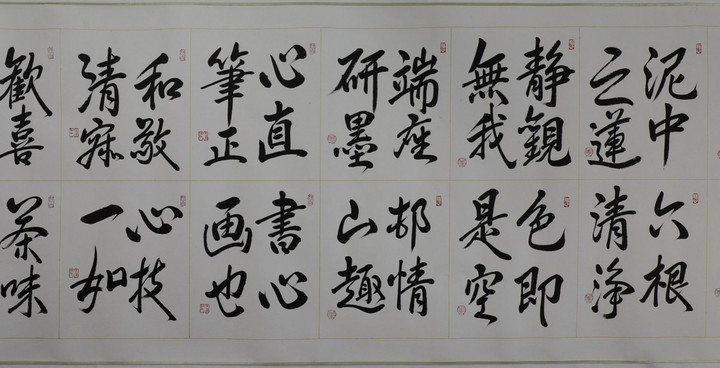 泥中
之蓮
六根
清浄
静觀
無我
色即
是空
端座
研墨
邨情
山趣
心直
筆正
書心
画也
和敬
清寂
心技
一如
歓喜
茶味